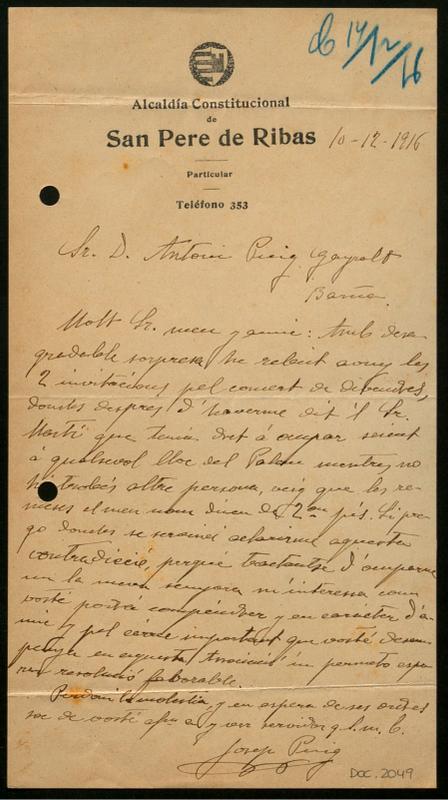 14/12/16
Alcaldía Constitucional
de
San Pere de Ribas 10-12-1916
Particular
Teléfono 353
Sr. D. Antoni Puig Gayralt
Barna.
Molt Sr. meu y amic: Amb desa
gradable sorpresa he rebut avuy les
2 invitacions pel concert de divendres,
doncs despres d'haverme dit 'l Sr.
Martí que tenía dret á ocupar seient
á qualsevol lloc del Palau mentres no
hi altre persona, veig que les re-
meses el meu nom diuen de 2on pis. Li pre-
go doncs se serveixi aclarirme aquesta
contradicció, perqué tractantse d'
m la meva sempre m'interessa com
vosté podrá compendrer y en carácter d'a-
mic y pel cárrec important que vosté desem-
penya en aquesta Associació 'm permeto espe-
rar resolució favorable.
Perdoni la molestia, y en espera de ses ordres
soc de vosté afm. a. y segr servidor q. l. m. b.
Josep Puig
DOC. 2049